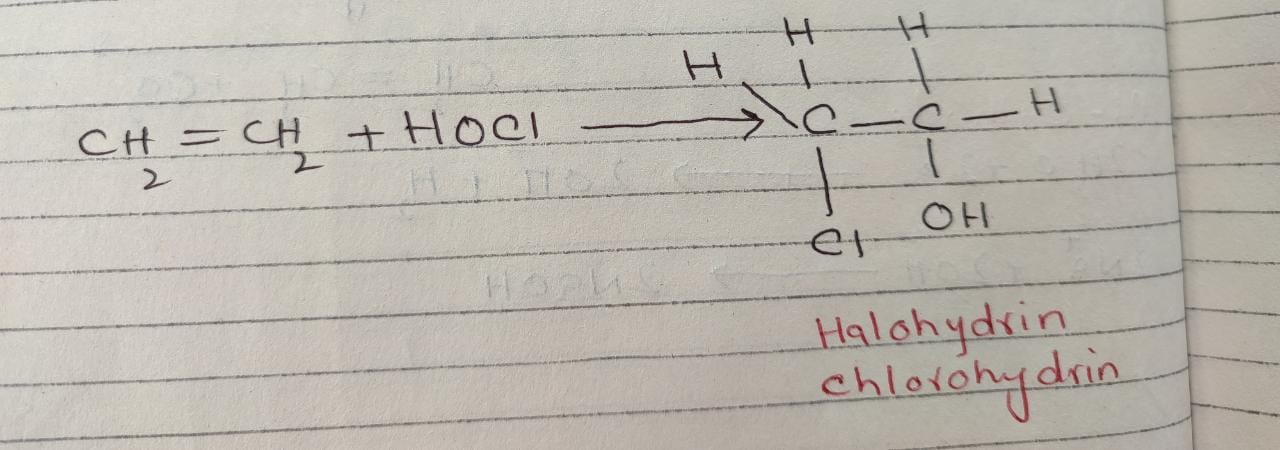 H H
H
CH2 = CH2 + HOCl ⟶ C — C — H
Cl OH
Halohydrin
chlorohydrin